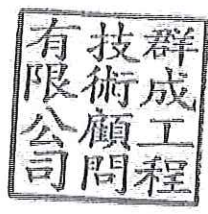 群成工程
技術顧問
有限公司